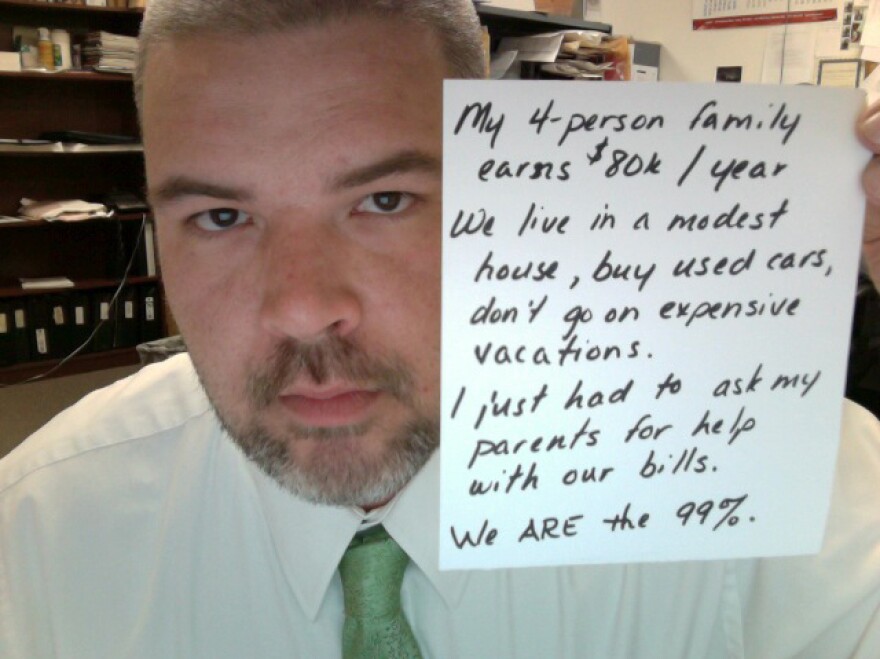 My 4-person family
earns $80k / year
We live in a modest
house, buy used cars,
don't go on expensive
vacations.
I just had to ask my
parents for help
with our bills.
We ARE the 99%.